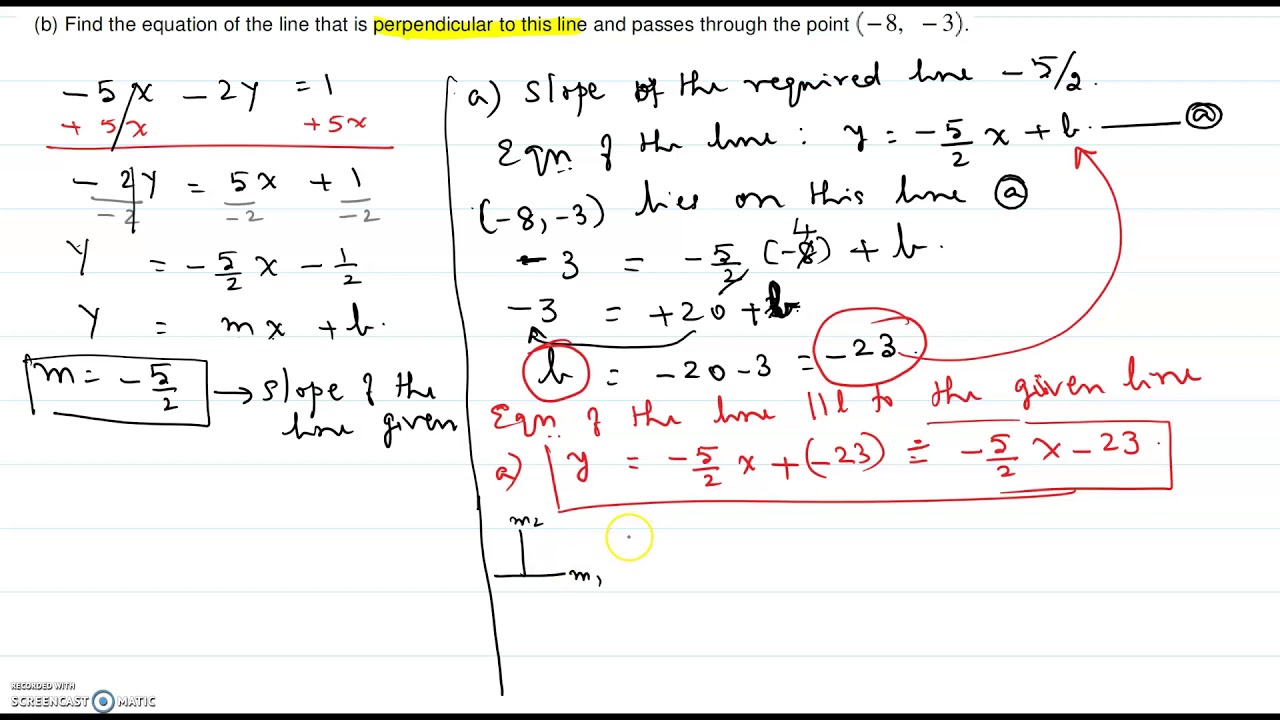 (b) Find the equation of the line that is perpendicular to this line and passes through the point (−8, −3).
-5/x - 2y = 1
+ 5/x +5x
- 2y = 5x + 1
-2 -2 -2
Y = -5/2 x - 1/2
Y = mx + b.
m = -5/2 → slope of the
line given
a) Slope of the required line -5/2.
Eqn of the line: y = -5/2 x + b. — ⓐ
(-8, -3) lies on this line ⓐ
-3 = -5/2 (-8) + b.
4
-3 = +20 + b.
b = -20 - 3 = -23.
Eqn of the line ||l to the given line
a) y = -5/2 x + (-23) = -5/2 x - 23.
m2
m1
RECORDED WITH
SCREENCAST MATIC